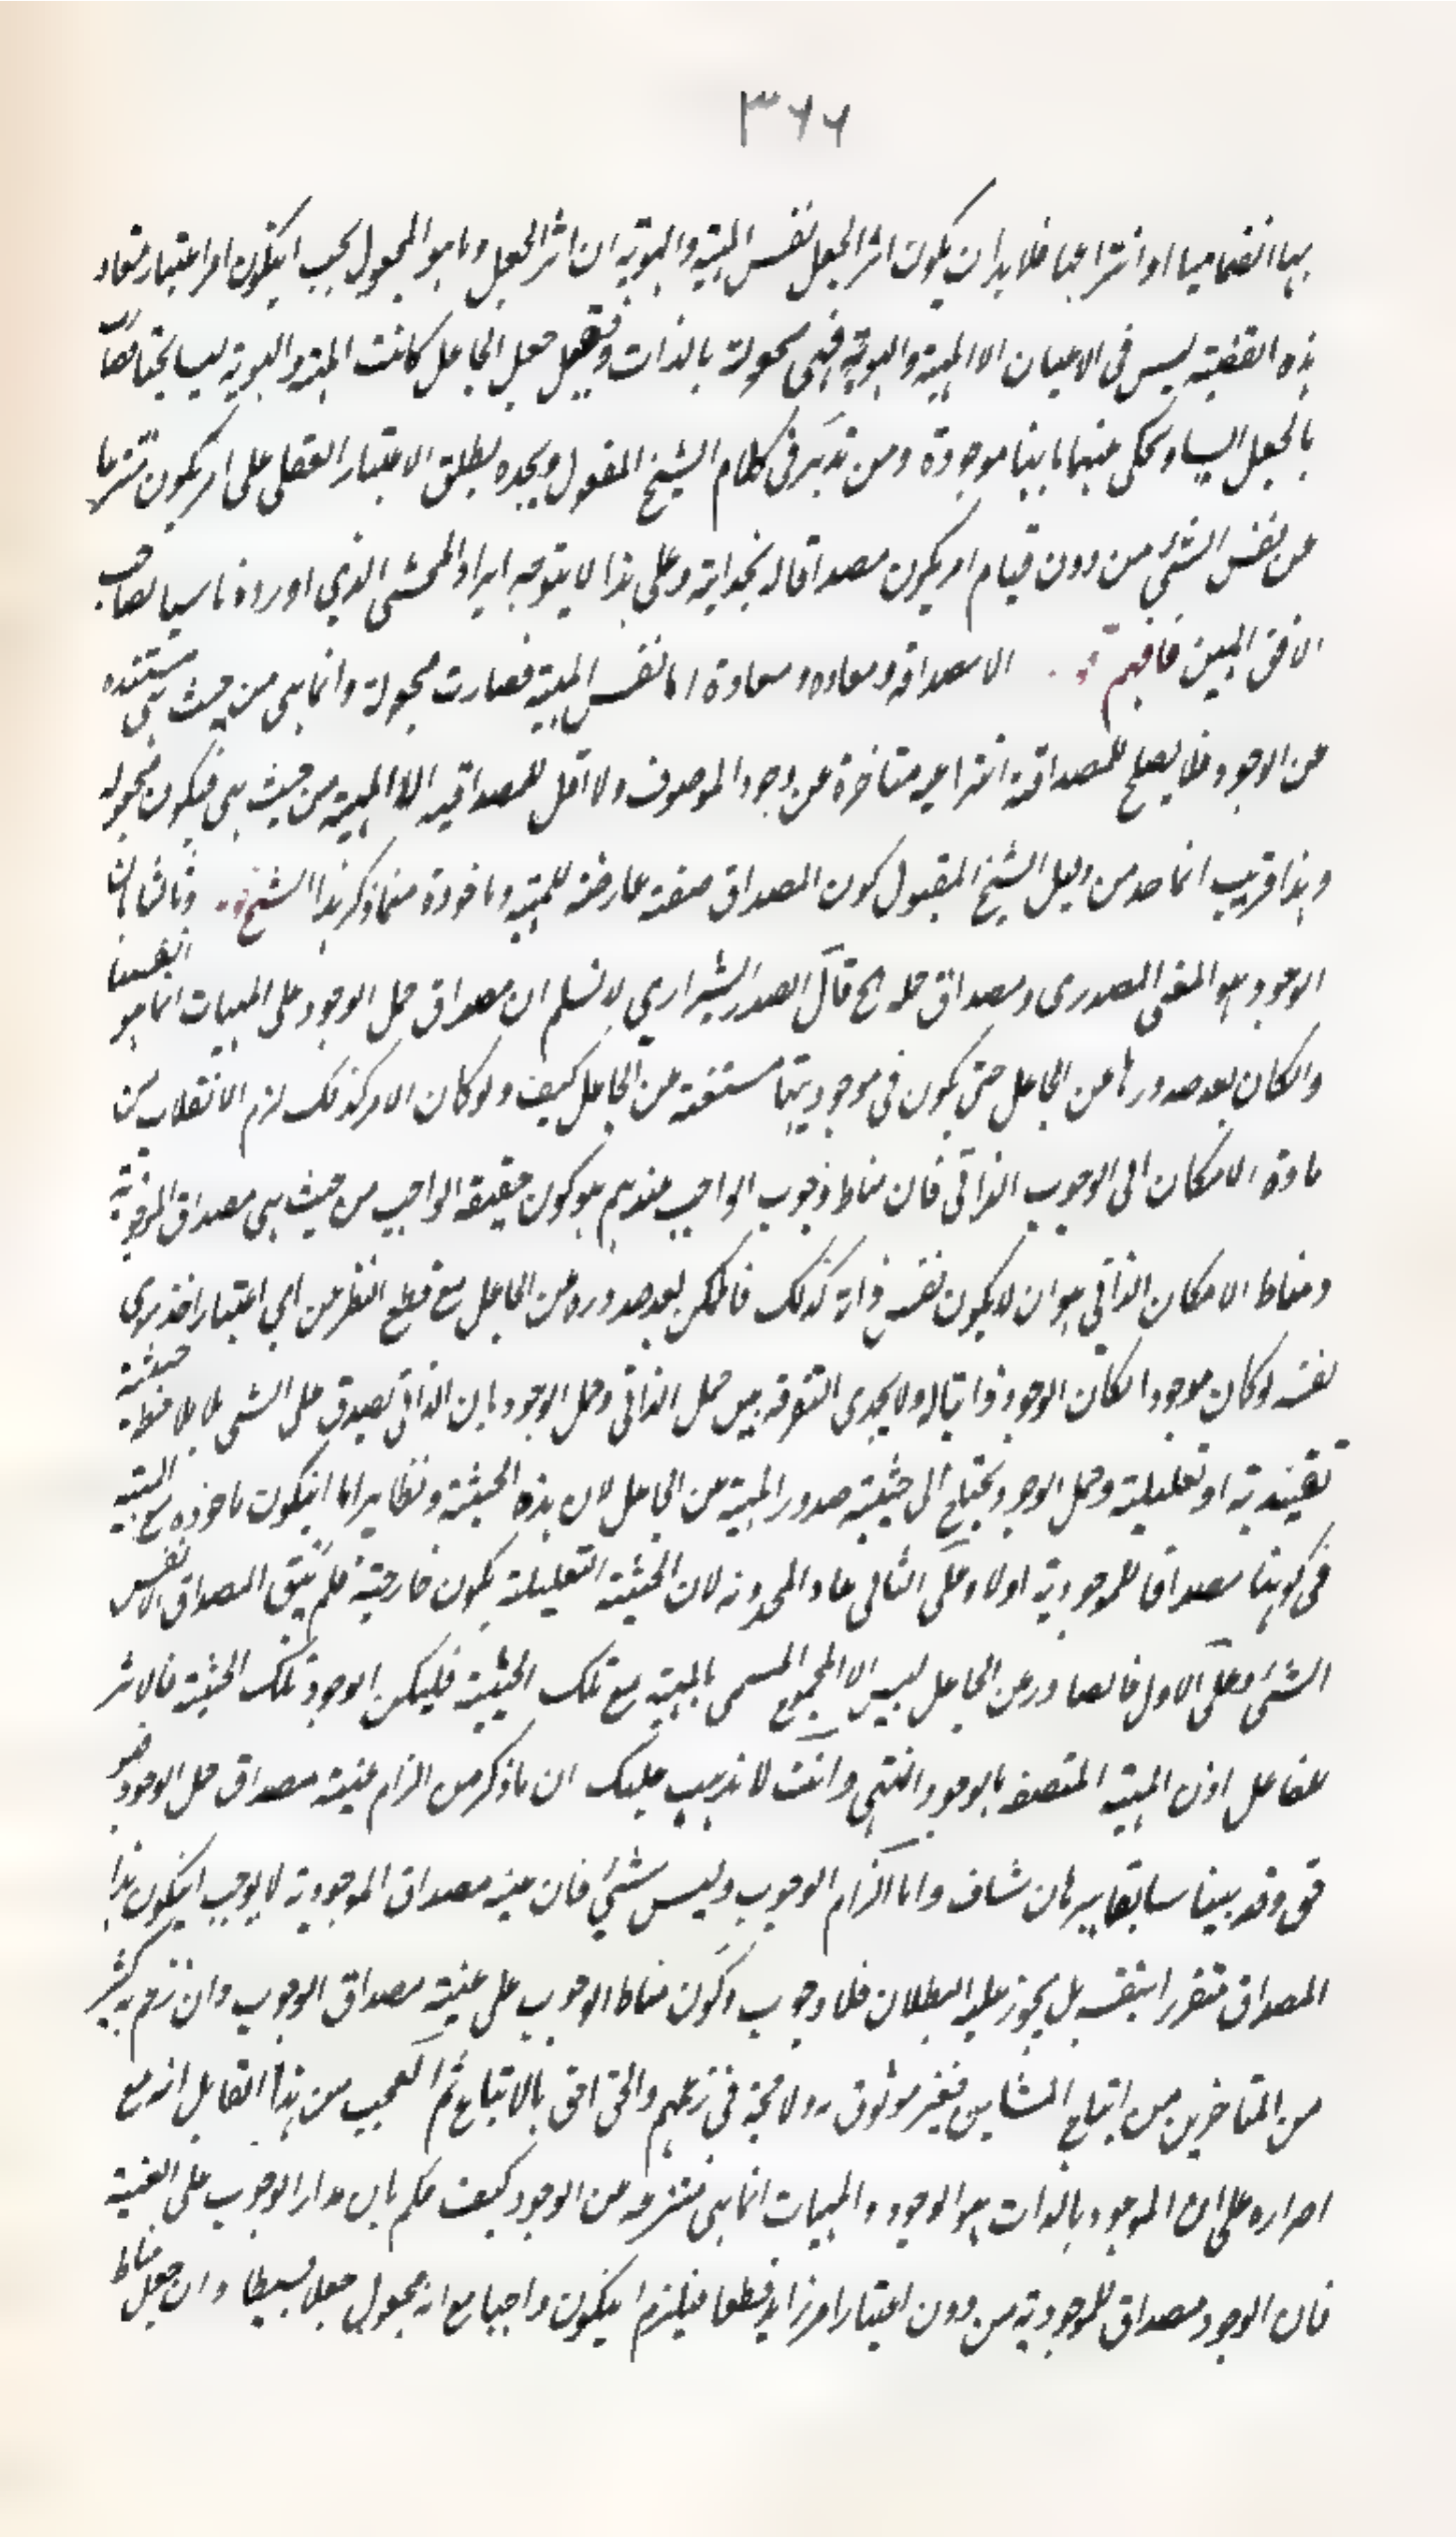 ٣٦٦
بها انضماميا او انتزاعيا فلا بد ان يكون اثر الجعل نفس المهية والهوية ان اثر الجعل وما هو المجعول يجب ايكون امرا اعتبار
هذه القضية ليس في الاعيان الا المهية والهوية فهي مجعولة بالذات وقيل جعل الجاعل كانت المهية والهوية ليسا
بالجعل ليسا ويحكي عنهما بانهما موجودة ومن تدبر في كلام الشيخ المقبول ويجده يطلق الاعتبار العقلي على امر يكون منتزعا
عن نفس الشئ من دون قيام امر يكون مصداقا له وعلى هذا لا يتوجه ايراد المحشي الذي اورده تاسيا لصاحب
الافق المبين فافهم الا مصداقه ومعاده ومعادة اما نفس المهية فصارت مجعولة وانما هي من حيث هي مستندة
عن الوجود فلا يصلح للمصداقية انتزاعية متاخرة عن وجود الموصوف ولا اقل للمصداقية الا المهية من حيث هي فيكون مجعولة
وهذا قريب انما من دليل الشيخ المقبول كون المصداق صفة عارضة للمهية وماخوذة منها ذكر هذا الشيخ وثالثا ان
الوجود هو المعنى المصدرى ومصداق حمله الخ قال الصدر الشيرازي لا نسلم ان مصداق حمل الوجود على المهيات انما هو انفسها
والكان بعد صدورها عن الجاعل حتى يكون في موجوديتها مستغنية عن الجاعل كيف ولو كان الامر كذلك لزم الانقلاب من
مادة الامكان الى الوجوب الذاتي فان مناط وجوب الواجب عندهم هو كون حقيقة الواجب من حيث هي مصداق الموجودية
ومناط الامكان الذاتي هو ان لا يكون نفس ذاته كذلك فالممكن بعد صدوره عن الجاعل مع قطع النظر عن اي اعتبار اخذ سوى
نفسه لو كان موجودا لكان الوجود ذاتيا له ولا يجدى التفرقة بين حمل الذاتي وحمل الوجود بان الذاتي يصدق على الشي بلا ملاحظة حيثية
تقييدية او تعليلية وحمل الوجود يحتاج الى حيثية صدور المهية عن الجاعل لان هذه الحيثية ونظايرها اما ايكون ماخوذه مع المهية
في كونها مصداقا للموجودية اولا وعلى الثاني عاد المحذور لان الحيثية التعليلية يكون خارجية فلم يبق المصداق الا نفس
الشئ وعلى الاول فالصادر عن الجاعل ليس الا المجموع المسمى بالمهية مع تلك الحيثية فليكن الوجود تلك الحيثية فالاثر
للفاعل اذن المهية المتصفة بالوجود انتهى وانت لا يذهب عليك ان ما ذكر من الزام عينية مصداق حمل الوجود فهو
حق وقد بينا سابقا ببرهان شاف واما الزام الوجوب وليس بشئ فان عينية مصداق الموجودية لا يوجب ايكون هذا
المصداق متقررا بنفسه بل يجوز عليه البطلان فلا وجوب وكون مناط الوجوب على عينية مصداق الوجوب وان زعم به كثير
من المتاخرين من اتباع المشائين فغير موثوق به ولا حجة في زعمهم والحق احق بالاتباع ثم العجب من هذا القايل انه مع
اصراره على ان الموجود بالذات هو الوجود والمهيات انما هي منتزعة من الوجود كيف حكم بان مدار الوجوب على العينية
فان الوجود مصداق للموجودية من دون اعتبار امر زايد قطعا فيلزم ايكون واجبا مع انه مجعول جعلا بسيطا وان جعل مناط